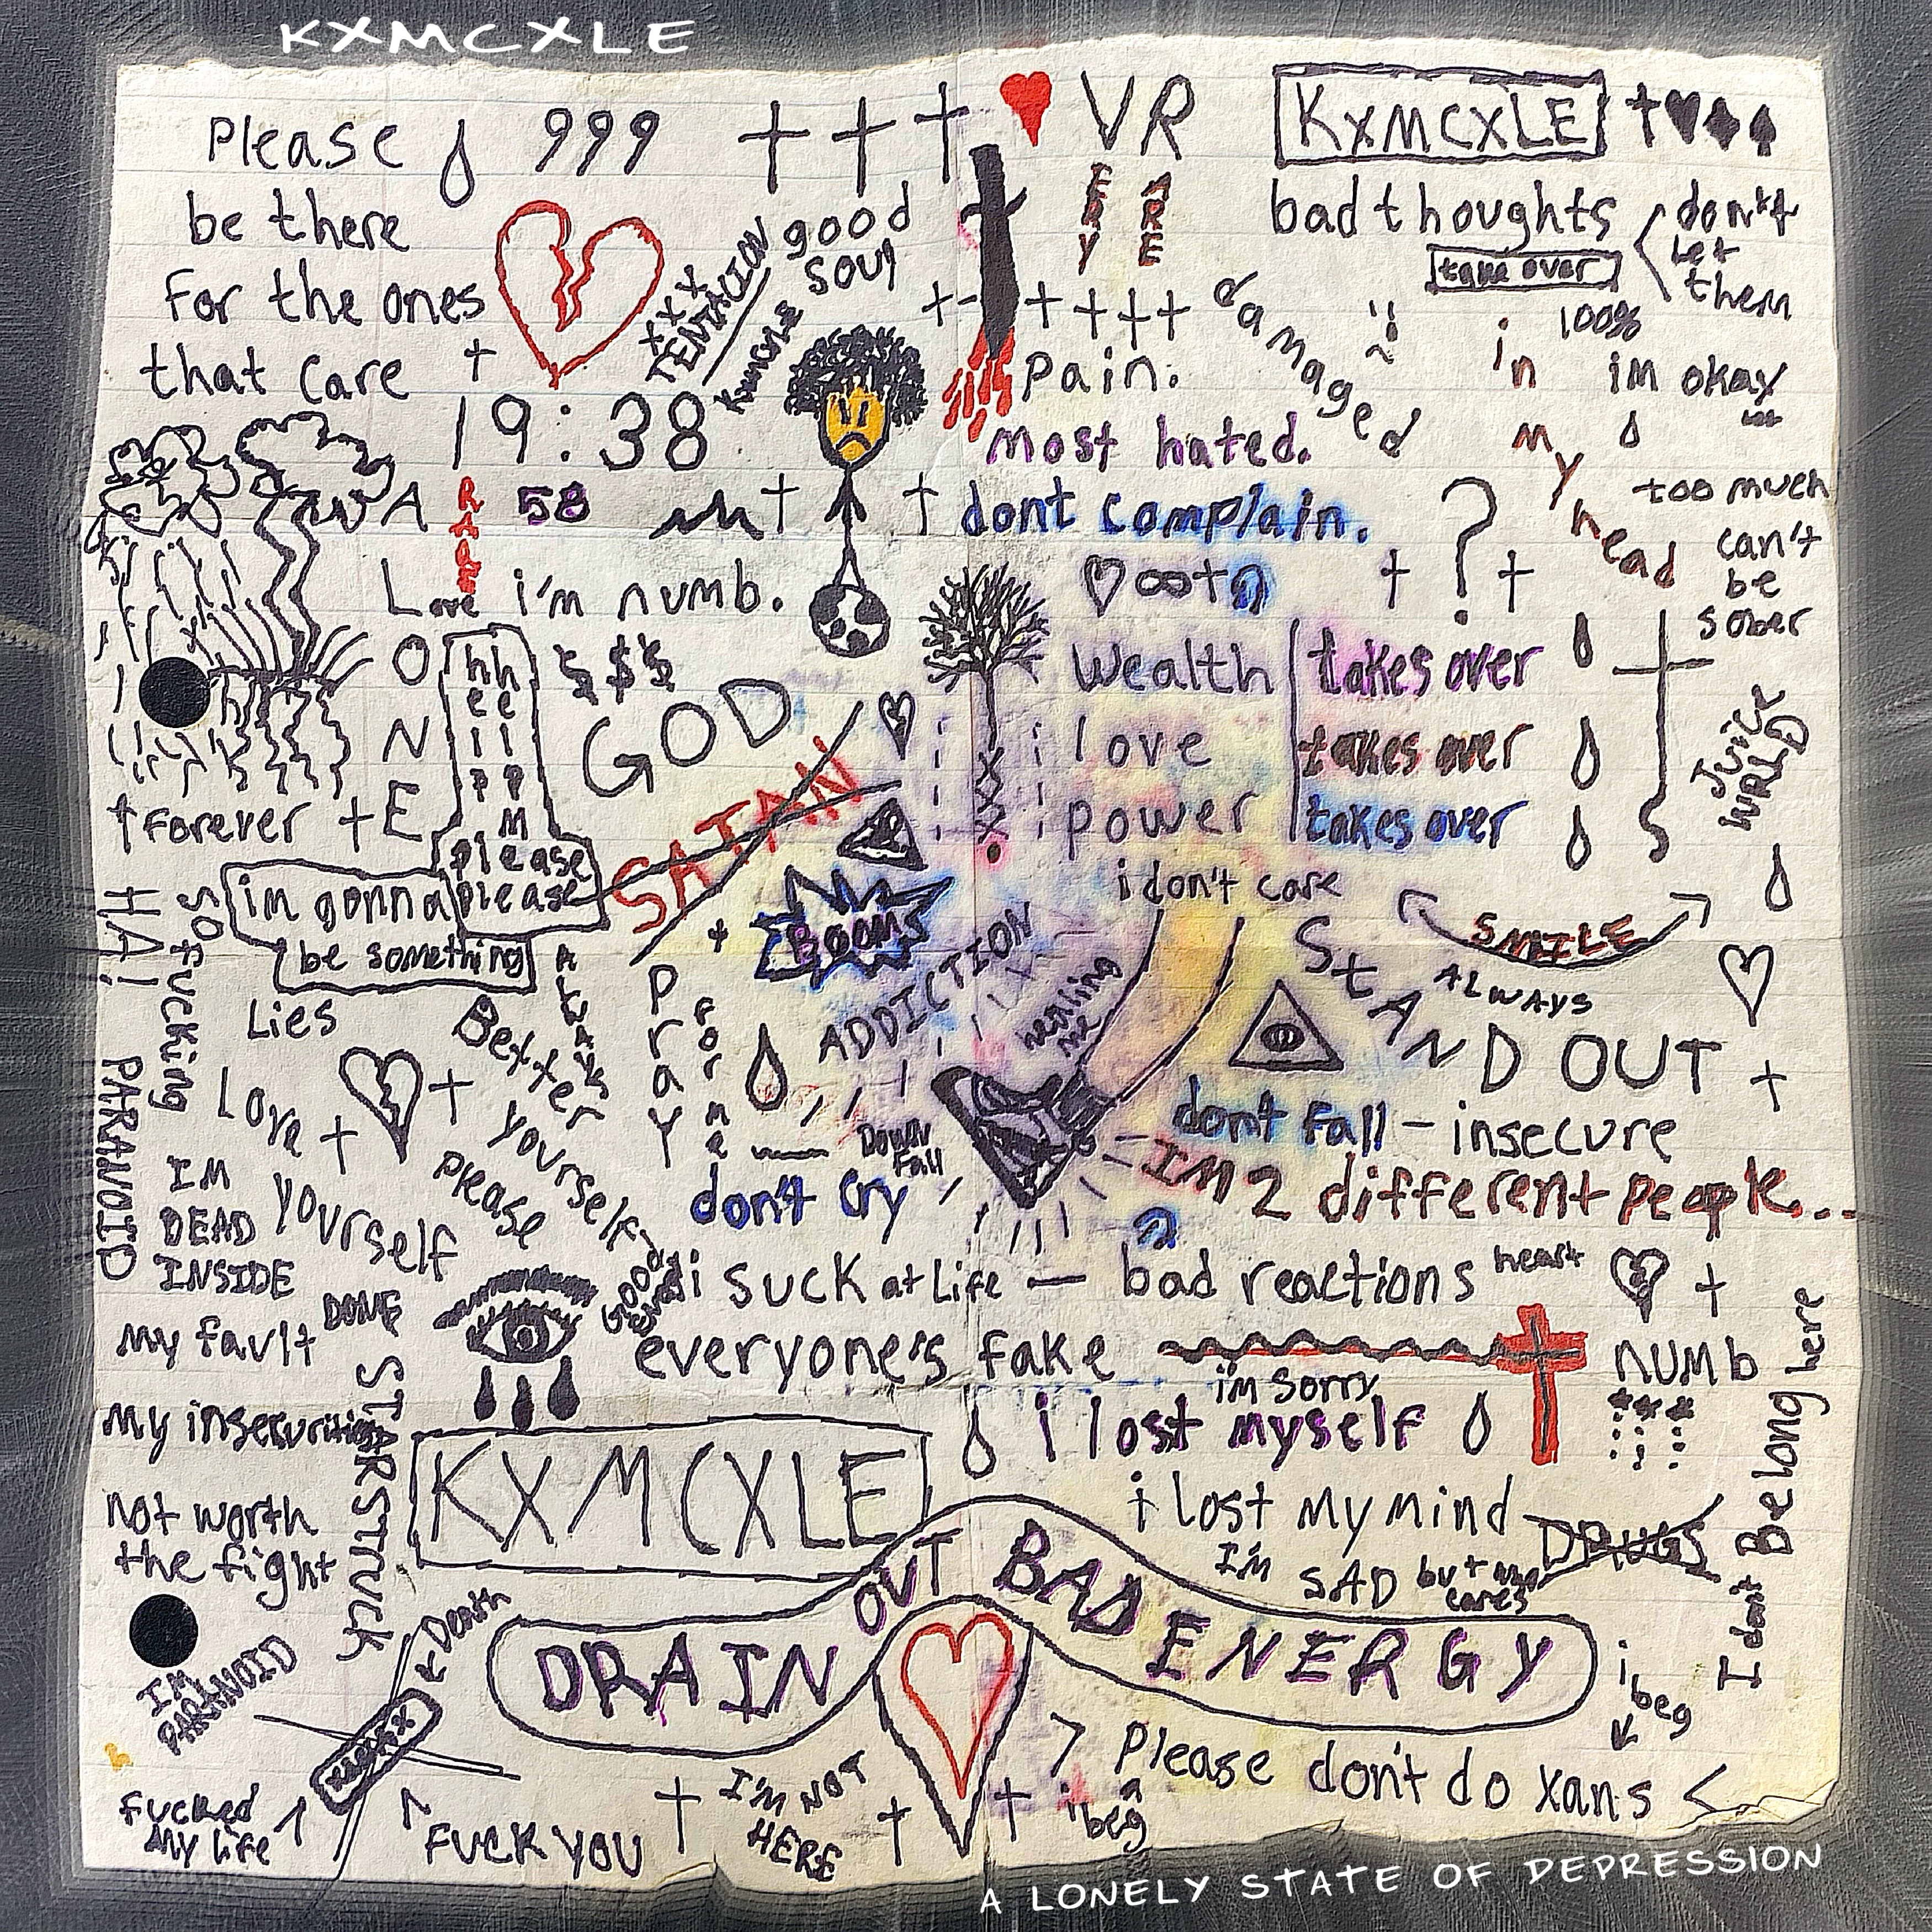 KXMCXLE
Please
be there
for the ones
that care
999
VR
ERY
ARE
KXMCXLE
bad thoughts
take over
don't
let
them
good
soul
XXX
TENTACION
damaged
100%
im okay
in
my
head
pain.
most hated.
dont complain.
19:38
58
RAGE
ALONE
Love
i'm numb.
too much
can't
be
sober
hh
ee
ll
pp
M
please
please
$$$
GOD
SATAN
Wealth takes over
love takes over
power takes over
i don't care
JUICE
WRLD
↑ forever
HA!
so fucking
PARANOID
im gonna
be something
Lies
ALWAYS
Bexxer
yourself
please
Pray
for
me
BOOM
ADDICTION
healing
me
SMILE
ALWAYS
StAND OUT
Love
yourself
IM
DEAD
INSIDE
DOWN
fall
don't cry
dont fall - insecure
IM 2 different people...
i suck at life — bad reactions
heart
my fault
DONE
everyone's fake
im sorry
numb
my insecurities
STARSTRUCK
KXMCXLE
i lost myself
i lost my mind
DRUGS
I'm SAD
cares
I dont Belong here
not worth
the fight
DRAIN OUT BAD ENERGY
Death
IM
PARANOID
xanax
fucked
my life
FUCK YOU
I'M NOT
HERE
i
beg
> Please don't do xans <
i
beg
A LONELY STATE OF DEPRESSION